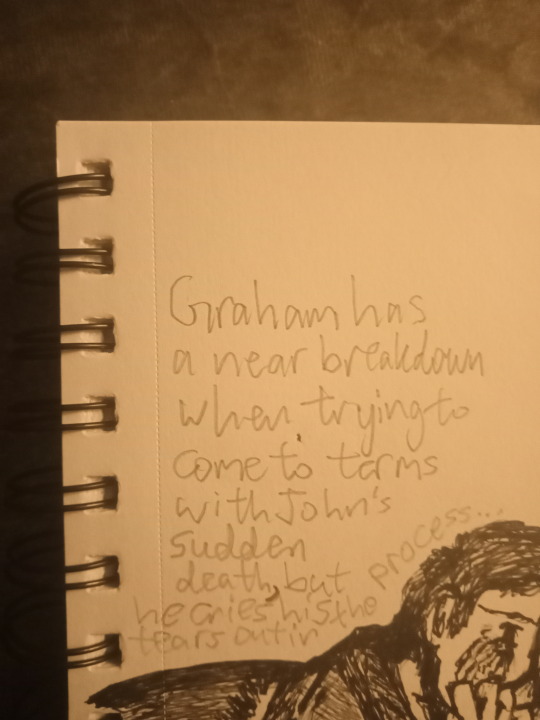 Graham has
a near breakdown
when trying to
come to terms
with John's
sudden
death, but
he cries his the
tears out in
process...